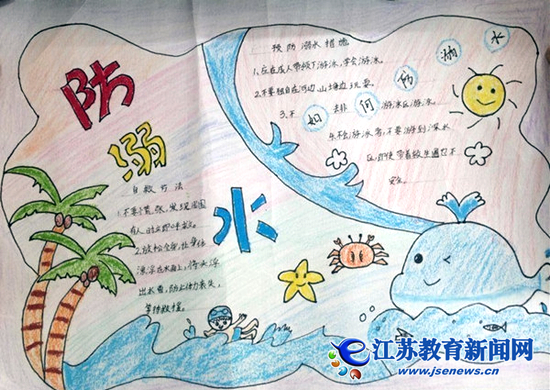 防
溺
水
预防溺水措施
如何防溺水
1.应在成人带领下游泳,学会游泳。
2.不要独自在河边、山塘边玩耍。
3.不去非游泳区游泳。
4.不会游泳者,不要游到深水
区,即使带着救生圈也不
安全。
自救方法
1.不要慌张,发现周围
有人时立即呼救。
2.放松全身,让身体
漂浮在水面上,将头浮
出水面,防止体力丧失,
等待救援。
江苏教育新闻网
www.jsenews.cn